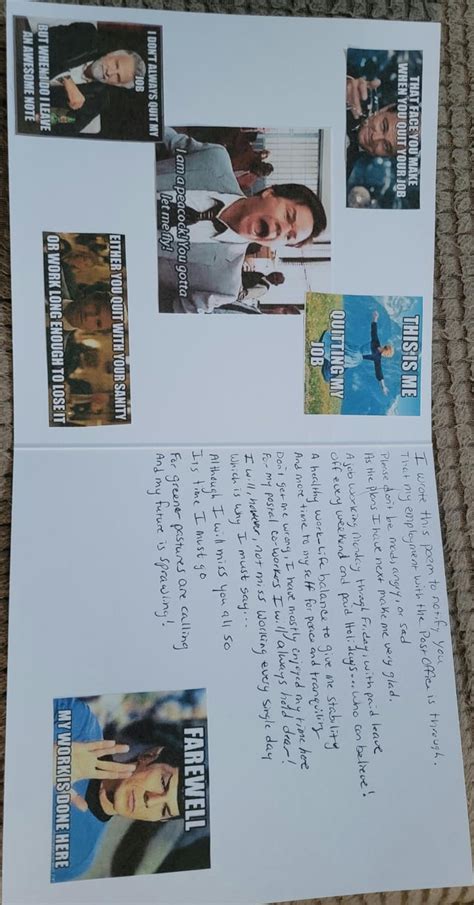 I DON'T ALWAYS QUIT MY
JOB
BUT WHEN I DO I LEAVE
AN AWESOME NOTE
THAT FACE YOU MAKE
WHEN YOU QUIT YOUR JOB
I am a peacock! You gotta
let me fly!
EITHER YOU QUIT WITH YOUR SANITY
OR WORK LONG ENOUGH TO LOSE IT
THIS IS ME
QUITTING MY
JOB
I wrote this poem to notify you
That my employment with the Post Office is through.
Please don't be mad, angry, or sad
As the plans I have next make me very glad.
A job working Monday through Friday, with paid leave
Off every weekend and paid Holidays... who can believe!
A healthy work-life balance to give me stability
And more time to my self for peace and tranquility
Don't get me wrong, I have mostly enjoyed my time here
For my postal co-workers I will always hold dear!
I will, however, not miss working every single day
Which is why I must say...
Although I will miss you all so
It is time I must go
For greener pastures are calling
And my future is sprawling!
FAREWELL
MY WORK IS DONE HERE